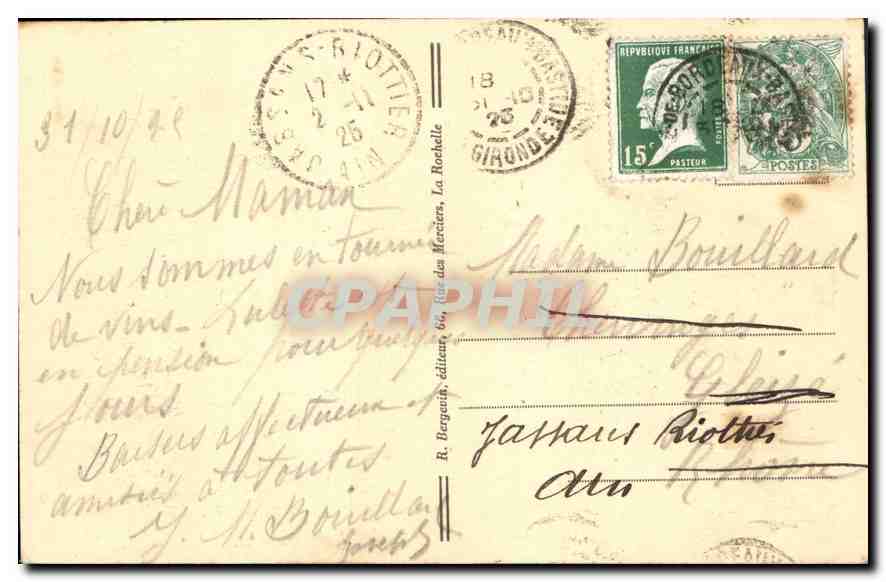 JASSANS-RIOTTIER
17 *
2 -11
25
AIN
BORDEAUX-BASTIDE
18
31 -10
25
GIRONDE
REPUBLIQUE FRANÇAISE
15c
POSTES
PASTEUR
BORDEAUX-BASTIDE
5
POSTES
31/10/25
Chère Maman
Nous sommes en tournée
de vins -
en pension pour quelques
jours
Baisers affectueux et
amitiés à toutes
J. M. Bouillard
Joseph
R. Bergevin, éditeur, 66, Rue des Merciers, La Rochelle
Madame Bouillard
Gleizé
Rhône
Jassans Riottier
Ain
CPAPHIL